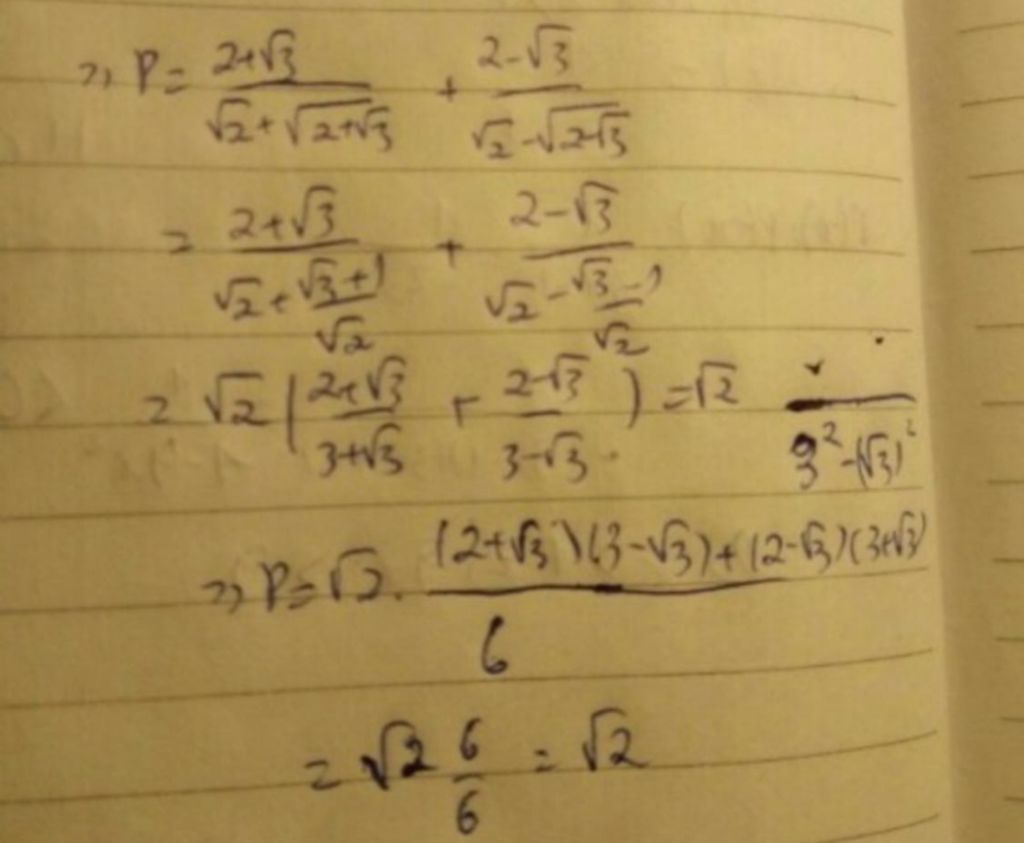 => P = (2+√3)/(√2+√(2+√3)) + (2-√3)/(√2-√(2-√3))
= (2+√3)/(√2+(√3+1)/√2) + (2-√3)/(√2-(√3-1)/√2)
= √2 ((2+√3)/(3+√3) + (2-√3)/(3-√3)) = √2 /(3²-(√3)²)
=> P = √2 . ((2+√3)(3-√3)+(2-√3)(3+√3))/6
= √2 6/6 = √2